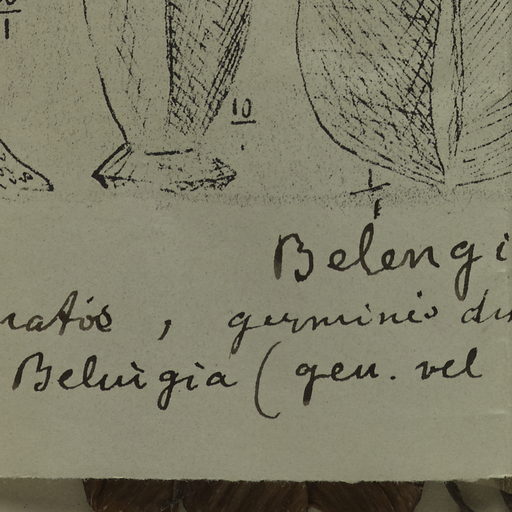 10
1
Belengi
ratós, germinis
Beluigia (gen. vel